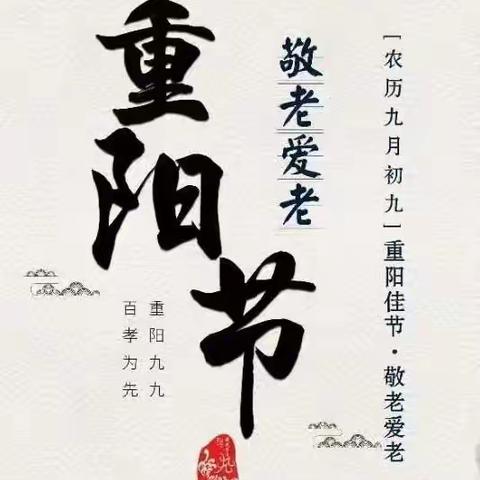 重阳节
敬老爱老
[农历九月初九]重阳佳节·敬老爱老
重阳九九
百孝为先